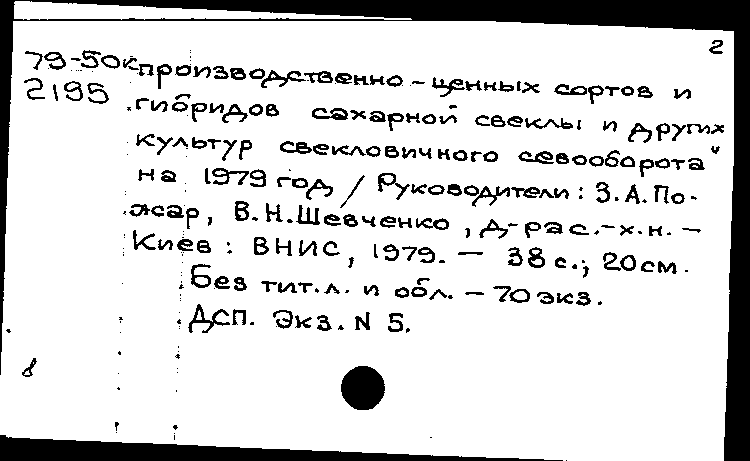 2
79-50к производственно-ценных сортов и
2195 гибридов сахарной свеклы и других
культур свекловичного севооборота"
на 1979 год / Руководители: З.А.По-
жар, В.Н.Шевченко, д-ра с.-х.н. —
Киев: ВНИС, 1979. — 38 с.; 20см.
Без тит.л. и обл. — 70 экз.
ДСП. Экз. N 5.